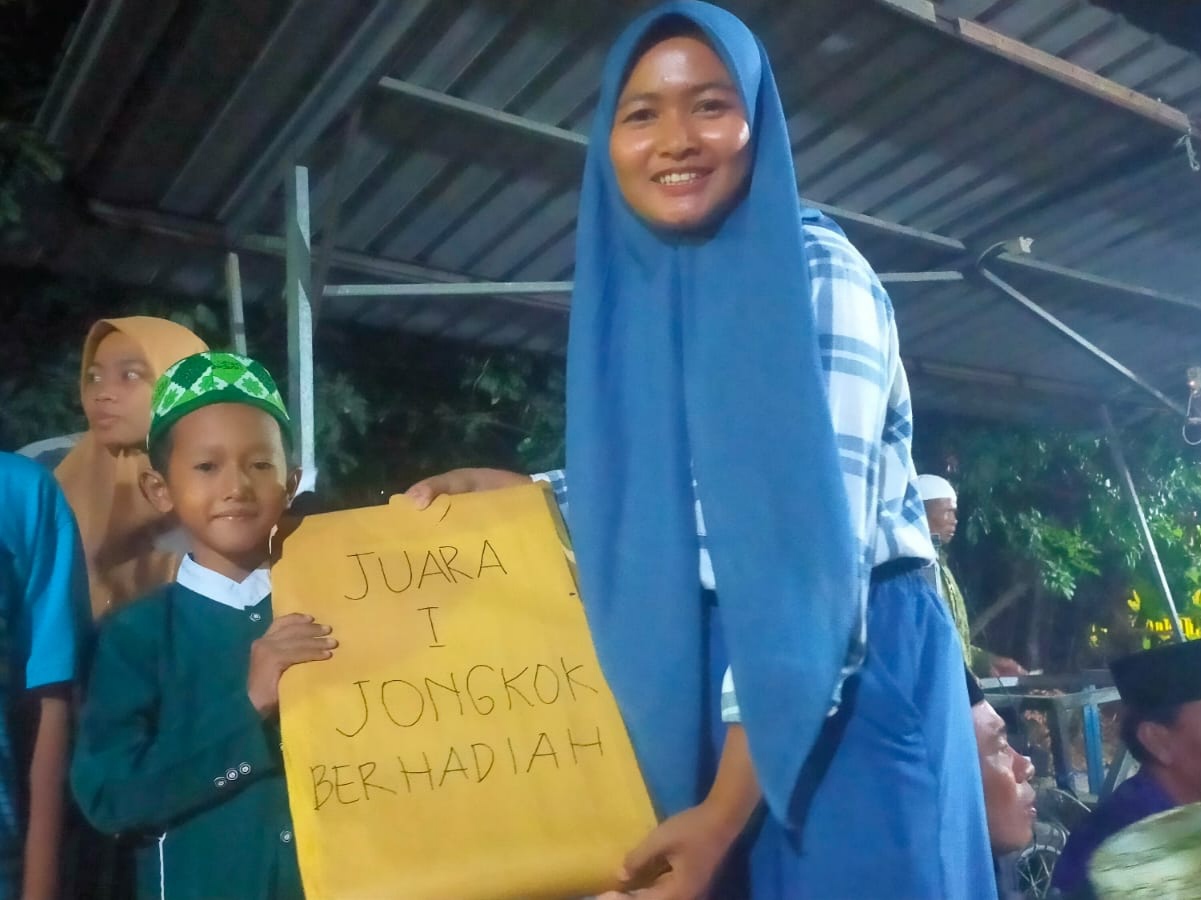 JUARA
I
JONGKOK
BERHADIAH